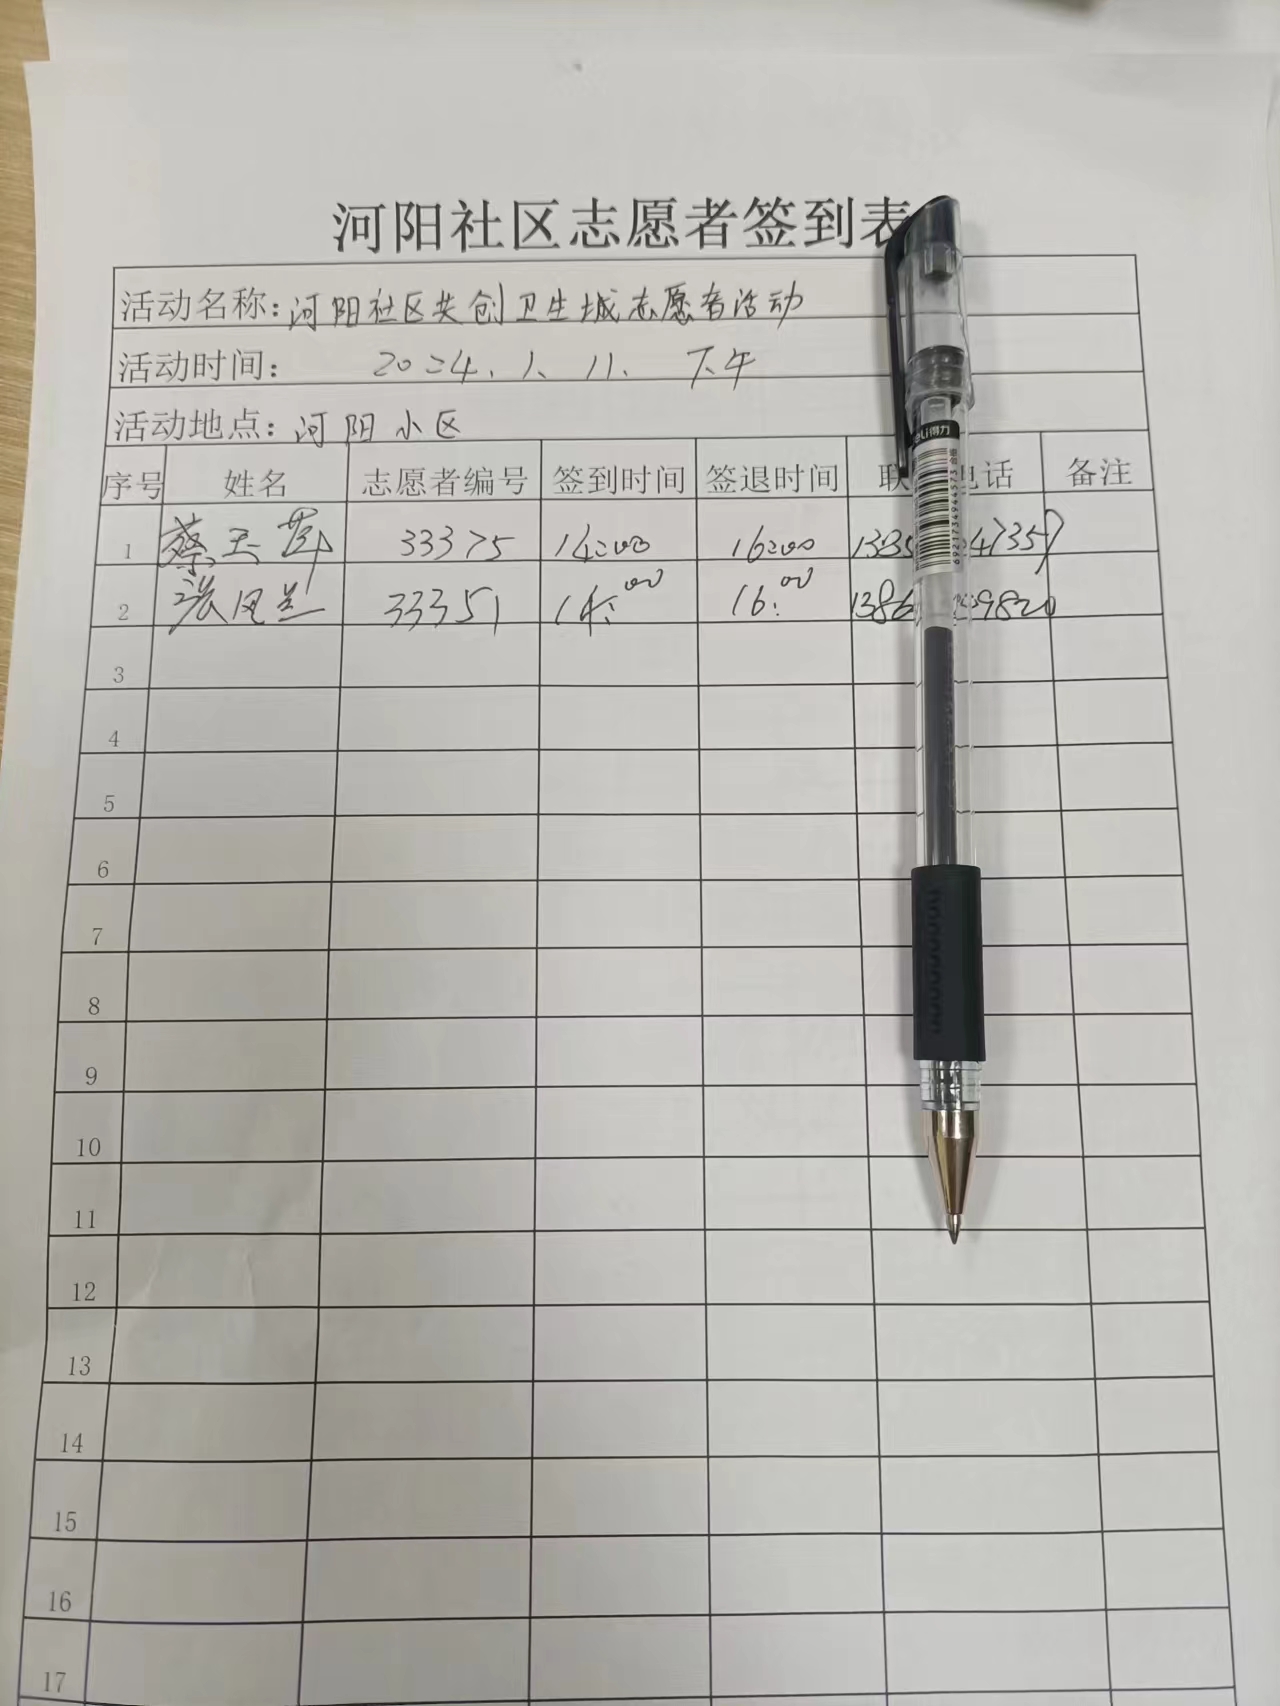 河阳社区志愿者签到表
活动名称: 河阳社区共创卫生城志愿者活动
活动时间: 2024.1.11. 下午
活动地点: 河阳小区
序号 姓名 志愿者编号 签到时间 签退时间 联 电话 备注
1 蔡玉萍 33375 14:00 16:00
2 张凤兰 33351 14:00 16:00
3
4
5
6
7
8
9
10
11
12
13
14
15
16
17
deli得力